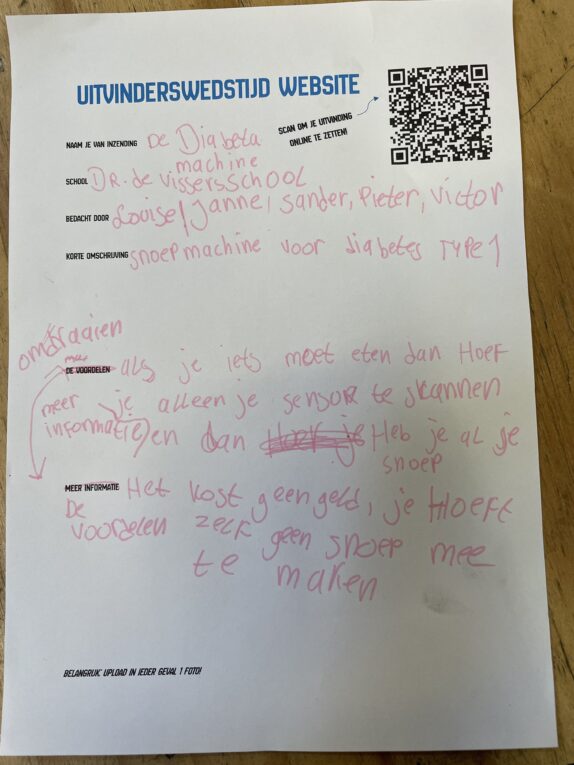 UITVINDERSWEDSTIJD WEBSITE
SCAN OM JE UITVINDING
ONLINE TE ZETTEN!
NAAM JE VAN INZENDING De Diabeta
machine
SCHOOL DR. de vissersschool
BEDACHT DOOR Louise, Janne, Sander, Pieter, Victor
KORTE OMSCHRIJVING snoepmachine voor diabetes TYPE 1
omdraaien
DE VOORDELEN als je iets moet eten dan Hoef
meer je alleen je sensor te skannen
informatie en dan Hoef je Heb je al je
snoep
MEER INFORMATIE Het kost geen geld, je Hoeft
De voordelen zelf geen snoep mee
te maken
BELANGRIJK: UPLOAD IN IEDER GEVAL 1 FOTO!